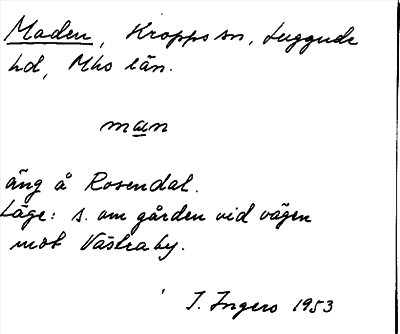 Maden, Kropps sn, Luggude
hd, Mhs län.
man
äng å Rosendal.
Läge: s. om gården vid vägen
mot Västraby.
I. Ingers 1953